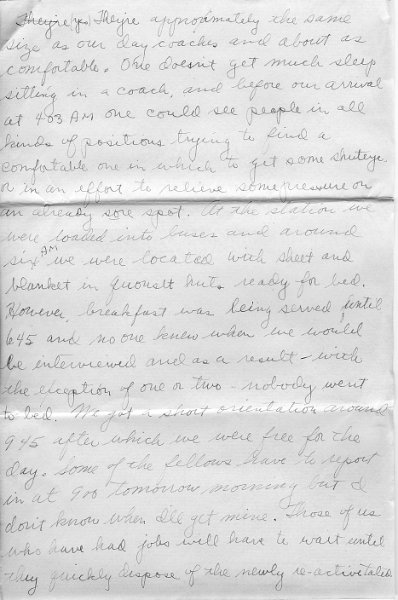 They're yes. They're approximately the same
size as our day coaches and about as
comfortable. One doesn't get much sleep
sitting in a coach, and before our arrival
at 403 AM one could see people in all
kinds of positions trying to find a
comfortable one in which to get some shuteye
or in an effort to relieve some pressure on
an already sore spot. At the station we
were loaded into buses and around
six AM we were located with sheet and
blanket in quonset huts ready for bed.
However, breakfast was being served until
645 and no one knew when we would
be interviewed and as a result - with
the exception of one or two - nobody went
to bed. We got a short orientation around
945 after which we were free for the
day. Some of the fellows have to report
in at 900 tomorrow morning but I
don't know when I'll get mine. Those of us
who have had jobs will have to wait until
they quickly dispose of the newly re-activitated